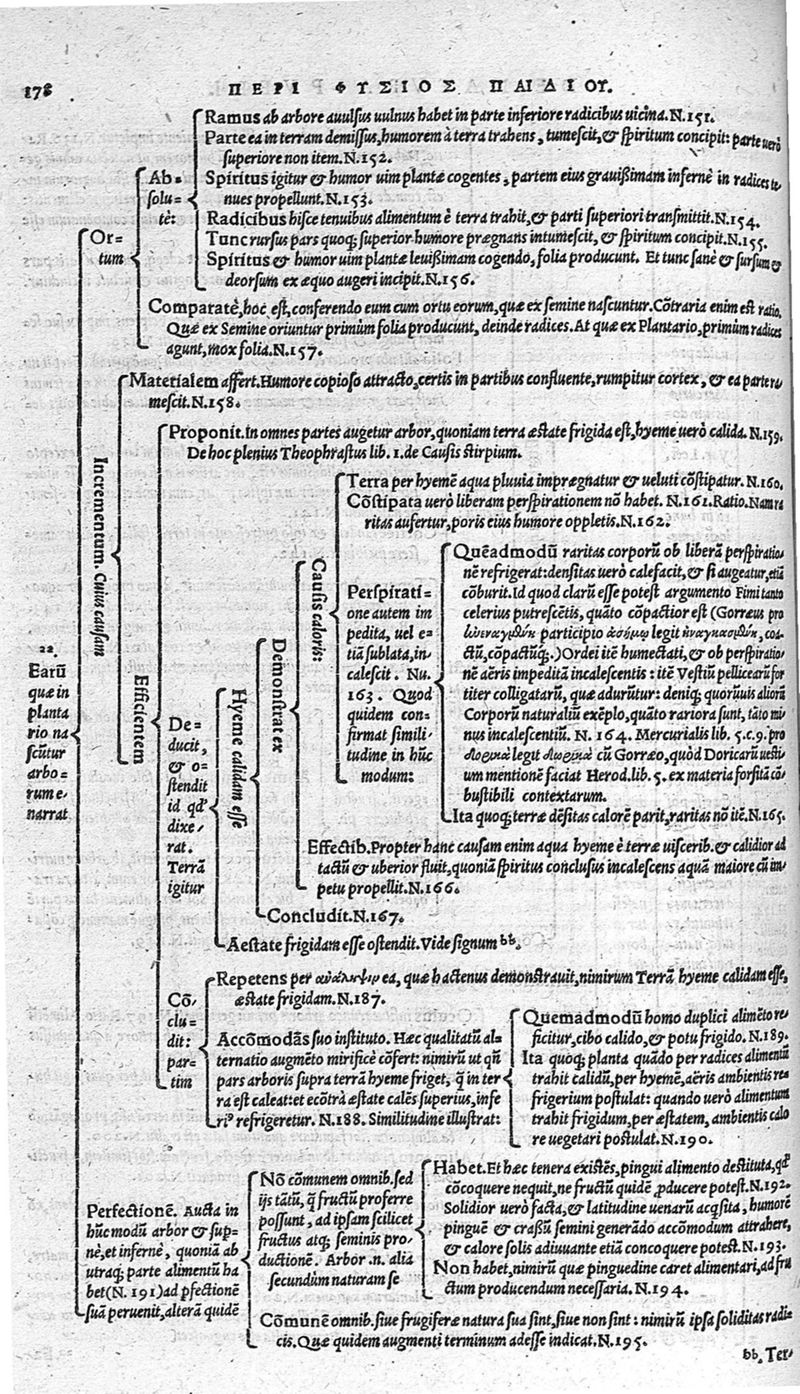 178
ΠΕΡΙ ΦΥΣΙΟΣ ΠΑΙΔΙΟΥ.
Ramus ab arbore auulsus uulnus habet in parte inferiore radicibus uicina. N. 151.
Parte ea in terram demissus, humorem à terra trahens, tumescit, & spiritum concipit: parte uerò
superiore non item. N. 152.
Ab-
solu-
tè:
Spiritus igitur & humor uim plantæ cogentes, partem eius grauißimam infernè in radices te
nues propellunt. N. 153.
Radicibus hisce tenuibus alimentum è terra trahit, & parti superiori transmittit. N. 154.
Tunc rursus pars quoq; superior humore prægnans intumescit, & spiritum concipit. N. 155.
Spiritus & humor uim plantæ leuißimam cogendo, folia producunt. Et tunc sanè & sursum &
deorsum ex æquo augeri incipit. N. 156.
Or-
tum
Comparatè, hoc est, conferendo eum cum ortu eorum, quæ ex semine nascuntur. Cōtraria enim est ratio.
Quæ ex Semine oriuntur primùm folia producunt, deinde radices. At quæ ex Plantario, primùm radices
agunt, mox folia. N. 157.
Materialem affert. Humore copioso attracto, certis in partibus confluente, rumpitur cortex, & ea parte ra
mescit. N. 158.
Proponit. In omnes partes augetur arbor, quoniam terra æstate frigida est, hyeme uerò calida. N. 159.
De hoc plenius Theophrastus lib. 1. de Causis stirpium.
Incrementum. Cuius causam
Efficientem
Terra per hyemē aqua pluuia imprægnatur & ueluti cōstipatur. N. 160.
Cōstipata uerò liberam perspirationem nō habet. N. 161. Ratio. Nam ra
ritas aufertur, poris eius humore oppletis. N. 162.
Causis caloris:
Perspirati-
one autem im
pedita, uel e-
tiā sublata, in-
calescit. Nu.
163. Quod
quidem con-
firmat simili-
tudine in hūc
modum:
Quēadmodū raritas corporū ob liberā perspiratio-
nē refrigerat: densitas uerò calefacit, & si augeatur, etiā
cōburit. Id quod clarū esse potest argumento Fimi tanto
celerius putrescētis, quāto cōpactior est (Gorræus pro
participio legit coa-
ctū, cōpactūq;.) Ordei itē humectati, & ob perspiratio-
nē aëris impeditā incalescentis: itē Vestiū pellicearū for
titer colligatarū, quæ adurūtur: deniq; quorūuis aliorū
Corporū naturaliū exēplo, quāto rariora sunt, tāto mi-
nus incalescentiū. N. 164. Mercurialis lib. 5. c. 9. pro
legit cū Gorræo, quòd Doricarū uesti-
um mentionē faciat Herod. lib. 5. ex materia forsitā cō-
bustibili contextarum.
Ita quoq; terræ dēsitas calorē parit, raritas nō itē. N. 165.
Demonstrat ex
Effectib. Propter hanc causam enim aqua hyeme è terræ uiscerib. & calidior ad
tactū & uberior fluit, quoniā spiritus conclusus incalescens aquā maiore cū im-
petu propellit. N. 166.
Hyeme calidam esse
Concludit. N. 167.
De-
ducit,
& o-
stendit
id qđ
dixe-
rat.
Terrā
igitur
Aestate frigidam esse ostendit. Vide signum bb.
22.
Earū
quæ in
planta
rio na
scūtur
arbo-
rum e-
narrat
Cō-
clu-
dit:
par-
tim
Repetens per ea, quæ hactenus demonstrauit, nimirum Terrā hyeme calidam esse,
æstate frigidam. N. 187.
Accōmodās suo instituto. Hæc qualitatū al-
ternatio augmēto mirificè cōfert: nimirū ut qñ
pars arboris supra terrā hyeme friget, q̄ in ter
ra est caleat: et ecōtrà æstate calēs superius, infe
ri⁹ refrigeretur. N. 188. Similitudine illustrat:
Quemadmodū homo duplici alimēto re-
ficitur, cibo calido, & potu frigido. N. 189.
Ita quoq; planta quādo per radices alimentū
trahit calidū, per hyemē, aëris ambientis re-
frigerium postulat: quando uerò alimentum
trahit frigidum, per æstatem, ambientis calo
re uegetari postulat. N. 190.
Perfectionē. Aucta in
hūc modū arbor & sup-
nè, et infernè, quoniā ab
utraq; parte alimentū ha
bet (N. 191) ad pfectionē
suā peruenit, alterā quidē
Nō cōmunem omnib. sed
ijs tātū, q̄ fructū proferre
possunt, ad ipsam scilicet
fructus atq; seminis pro-
ductionē. Arbor .n. alia
secundùm naturam se
Habet. Et hæc tenera existēs, pingui alimento destituta, qđ
cōcoquere nequit, ne fructū quidē pducere potest. N. 192.
Solidior uerò facta, & latitudine uenarū acqsita, humorē
pinguē & crassū semini generādo accōmodum attrahere,
& calore solis adiuuante etiā concoquere potest. N. 193.
Non habet, nimirū quæ pinguedine caret alimentari, ad fru
ctum producendum necessaria. N. 194.
Cōmunē omnib. siue frugiferæ natura sua sint, siue non sint: nimirū ipsa soliditas radi-
cis. Quæ quidem augmenti terminum adesse indicat. N. 195.
bb. Ter-